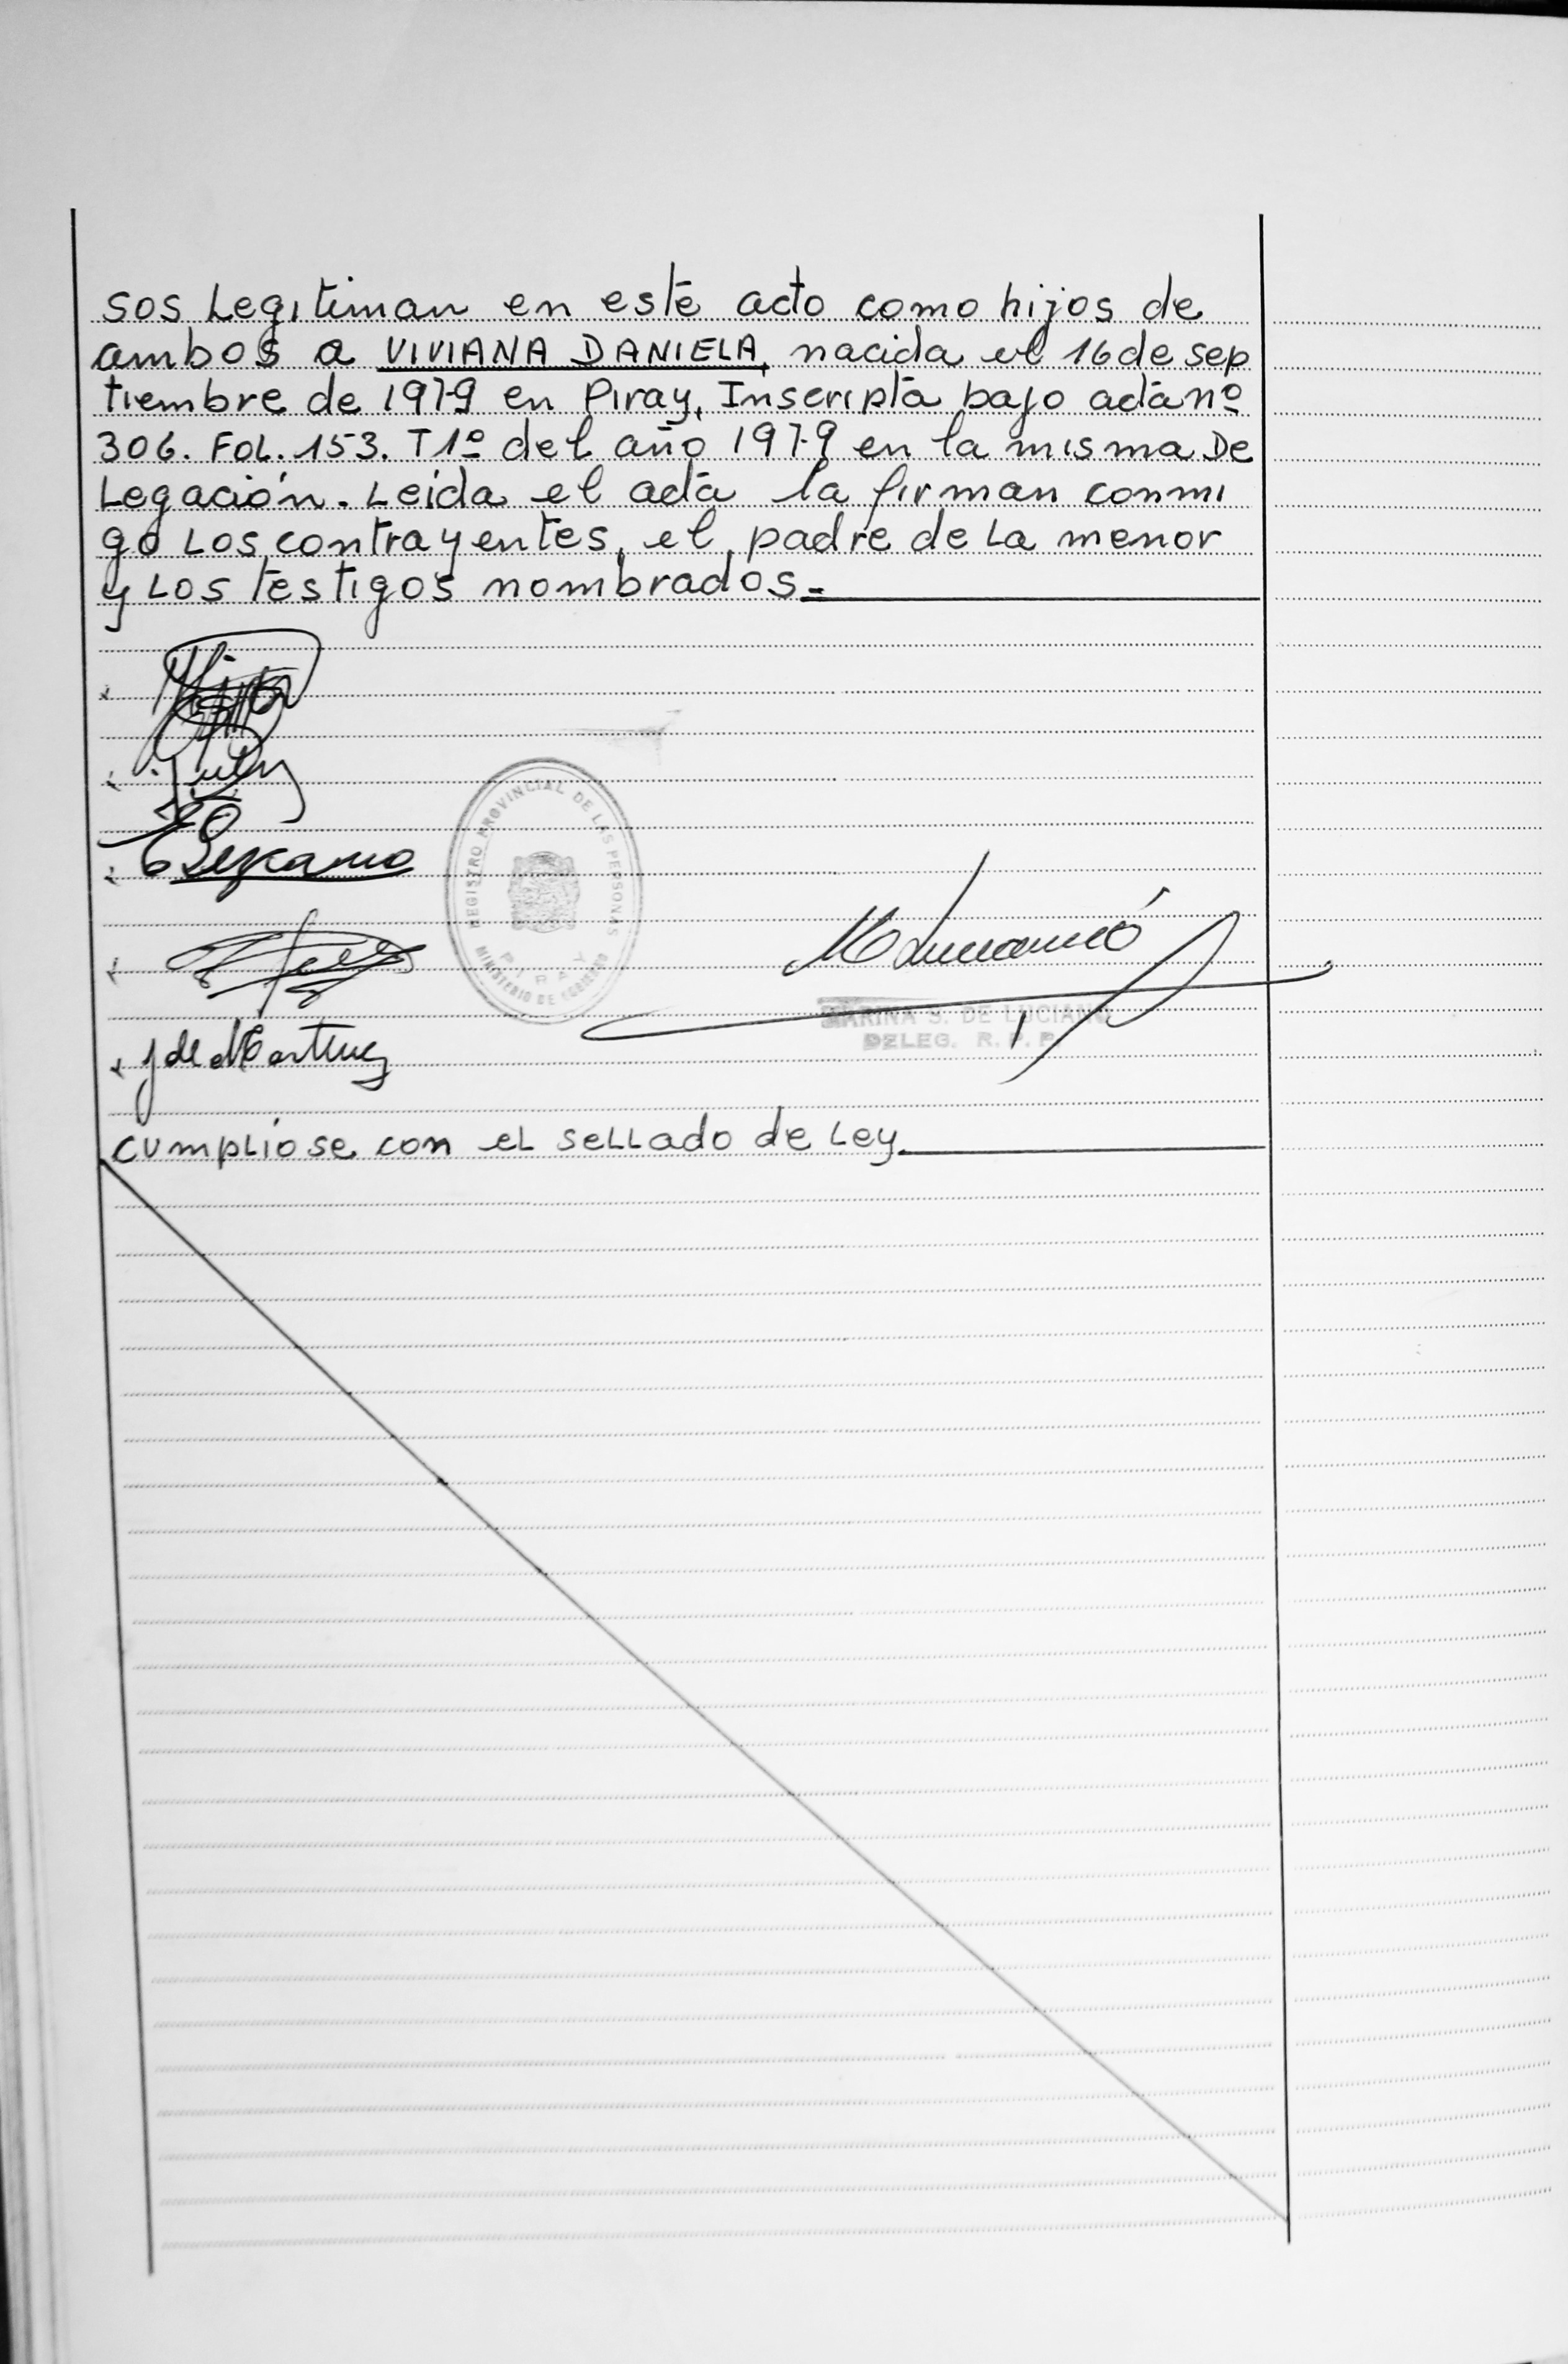 sos Legitiman en este acto como hijos de
ambos a VIVIANA DANIELA, nacida el 16 de sep
tiembre de 1979 en Piray, Inscripta bajo acta nº
306. FOL. 153. T 1º del año 1979 en la misma De
Legación. Leida el acta la firman conmi
go Los contrayentes, el padre de La menor
y Los testigos nombrados.=
REGISTRO PROVINCIAL DE LAS PERSONAS
PIRAY
MINISTERIO DE GOBIERNO
S. DE LUCIANO
DELEG. R. P. P.
J de Martinez
cumpliose con el sellado de Ley.